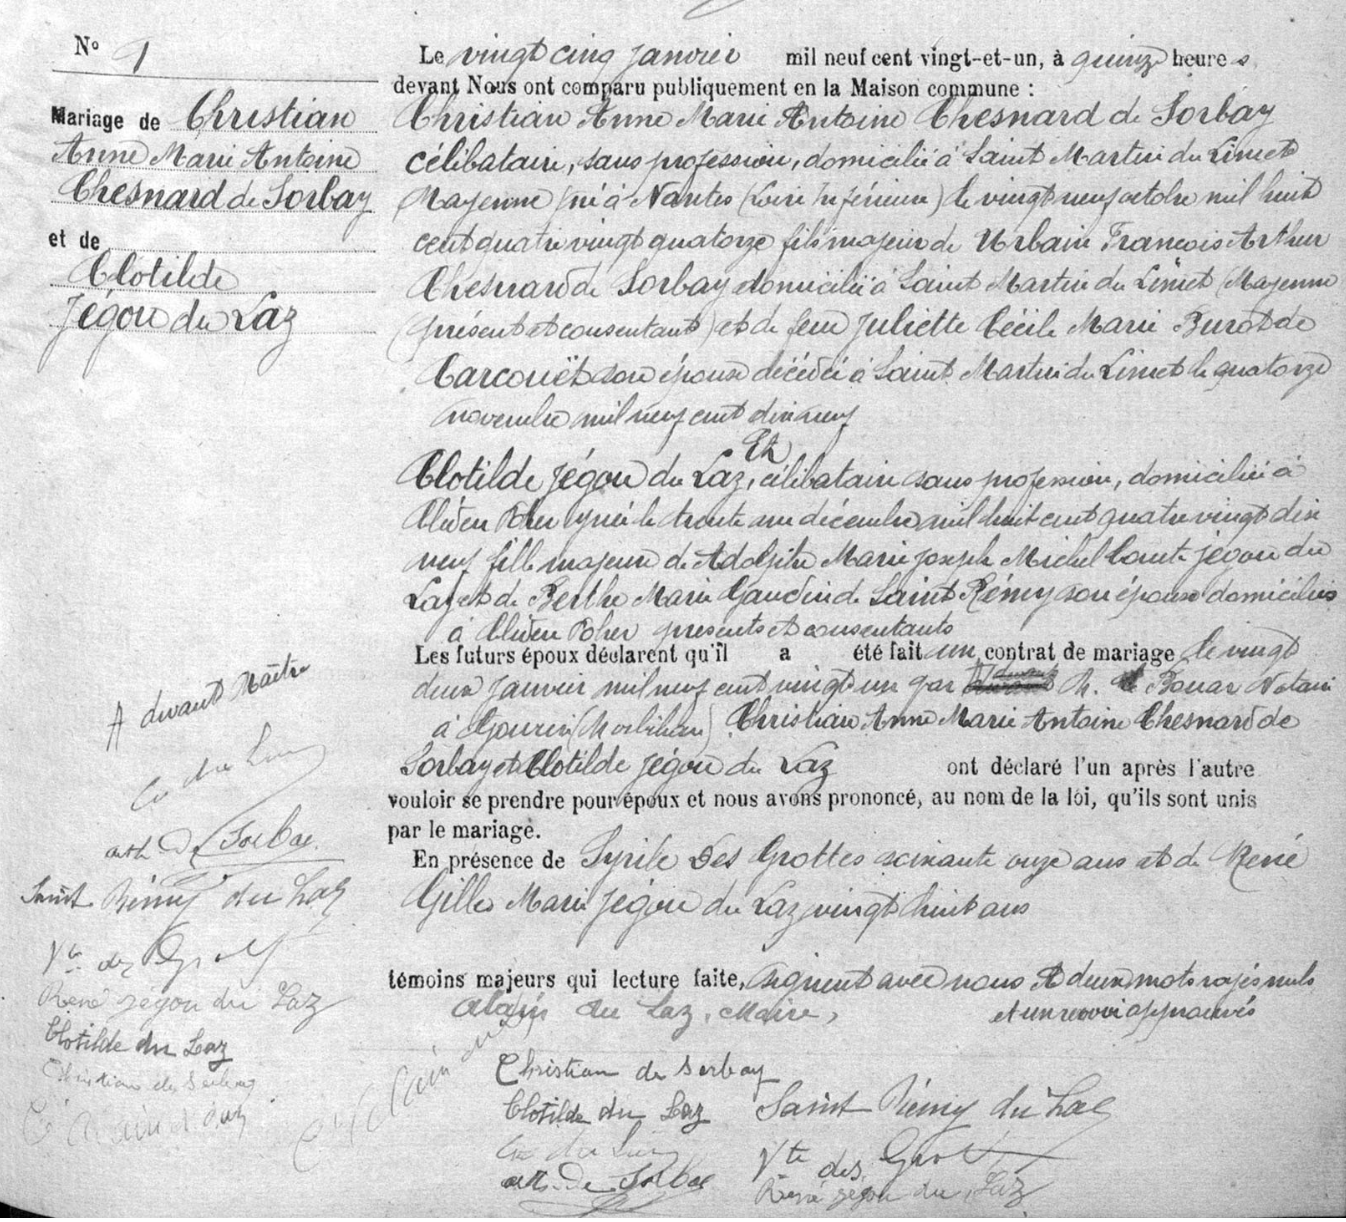 N° 1
Mariage de Christian
Anne Marie Antoine
Chesnard de Sorbay
et de
Clotilde
Jégou du Laz
Le vingt cinq janvier mil neuf cent vingt-et-un, à quinze heures
devant Nous ont comparu publiquement en la Maison commune :
Christian Anne Marie Antoine Chesnard de Sorbay
célibataire, sans profession, domicilié à Saint Martin du Limet
Mayenne né à Nantes (Loire Inférieure) le vingt neuf octobre mil huit
cent quatre vingt quatorze fils majeur de Urbain François Arthur
Chesnard de Sorbay domicilié à Saint Martin du Limet (Mayenne
(présent et consentant) et de feue Juliette Cécile Marie Burot de
Carcouët son épouse décédée à Saint Martin du Limet le quatorze
novembre mil neuf cent dix neuf
Et
Clotilde Jégou du Laz, célibataire sans profession, domiciliée à
Cléden Poher y née le trente un décembre mil huit cent quatre vingt dix
neuf fille majeure de Adolphe Marie Joseph Michel Comte Jégou du
Laz et de Berthe Marie Gaudin de Saint Rémy son épouse domiciliés
à Cléden Poher présents et consentants
Les futurs époux déclarent qu'il a été fait un contrat de mariage le vingt
deux janvier mil neuf cent vingt un par M. Bouar Notaire
à Gourin (Morbihan) Christian Anne Marie Antoine Chesnard de
Sorbay et Clotilde Jégou du Laz ont déclaré l'un après l'autre
vouloir se prendre pour époux et nous avons prononcé, au nom de la loi, qu'ils sont unis
par le mariage.
En présence de Syrile Des Grottes soixante onze ans et de René
Gilles Marie Jégou du Laz vingt huit ans
témoins majeurs qui lecture faite, signent avec nous deux mots rayés nuls
et un renvoi approuvés
Alain du Laz, Maire,
A devant Maître
Cte du Laz
arth. de Sorbay
Saint Rémy du Laz
Vte des Grottes
René Jégou du Laz
Clotilde du Laz
Christian de Sorbay
Christian de Sorbay
Clotilde du Laz
Saint Rémy du Laz
Cte du Laz
Vte des Grottes
arth. de Sorbay
René Jégou du Laz